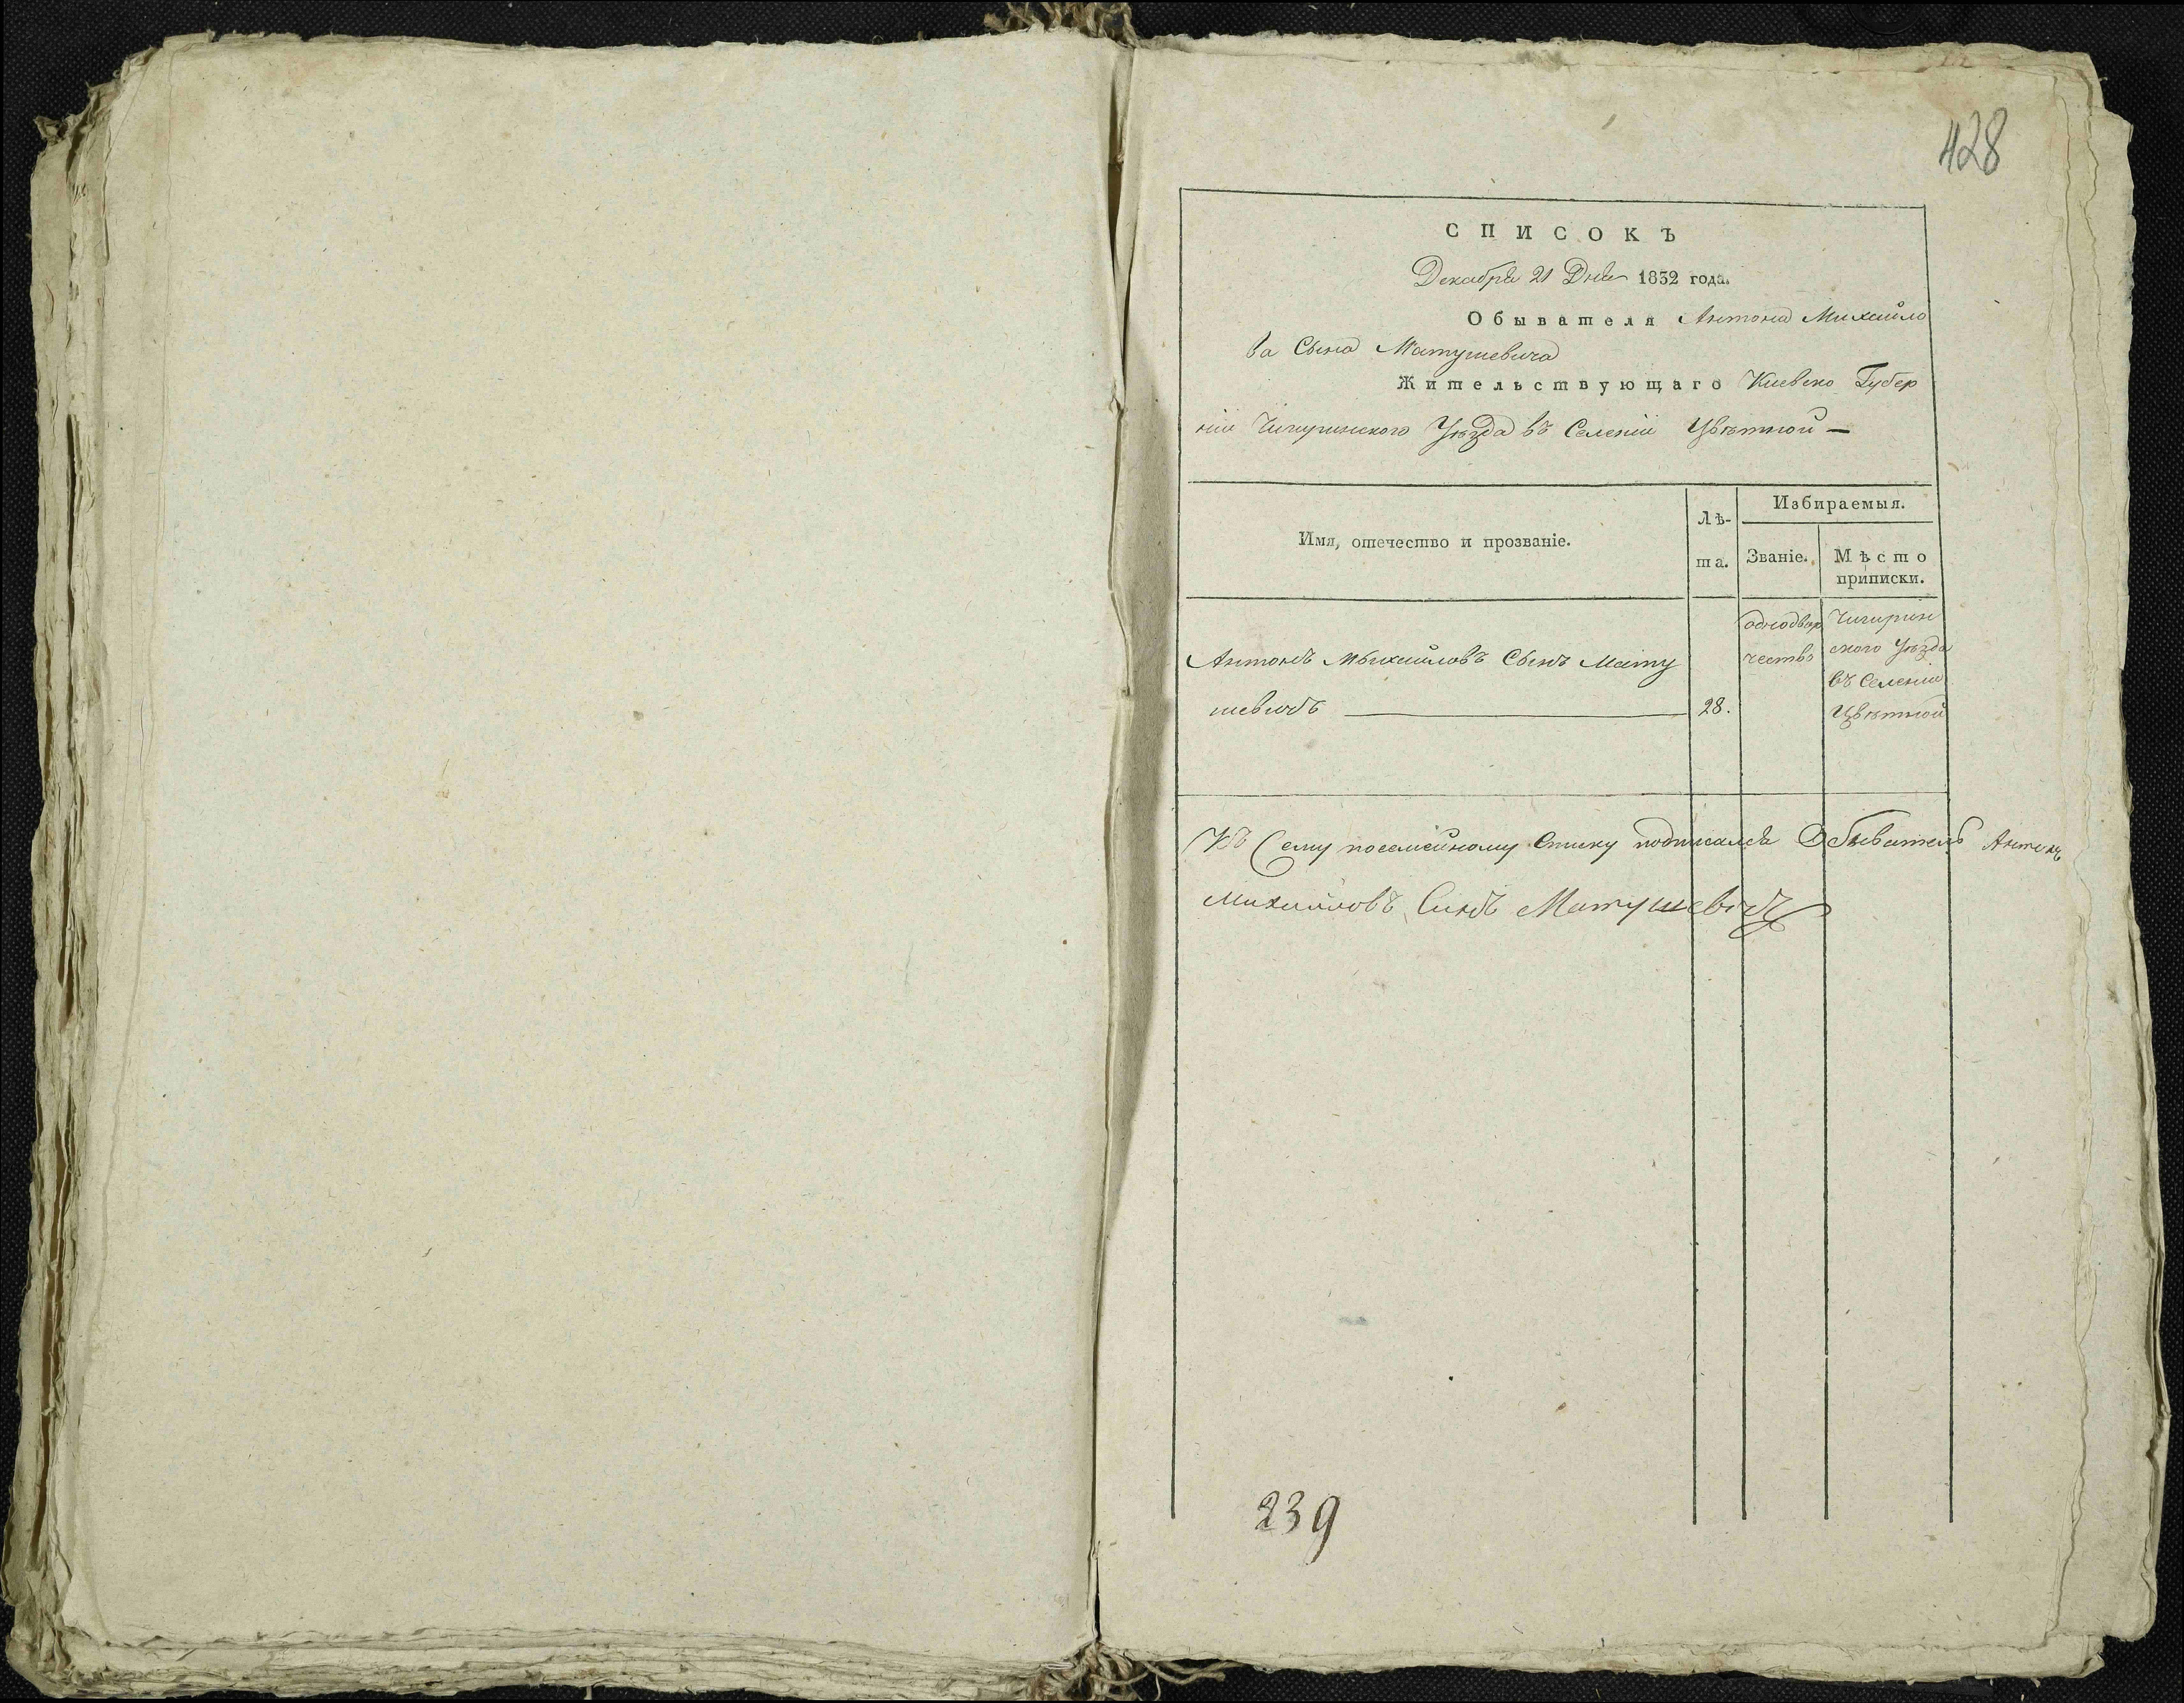 428
СПИСОКЪ
Декабря 21 Дня 1832 года.
Обывателя Антона Михайло
ва Сына Матушевича
Жительствующаго Киевско Губер
нiи Чигиринского Уѣзда въ Селенiи Цвѣтной —
Имя, отечество и прозванiе.
Лѣ-
та.
Избираемыя.
Званiе.
Мѣсто
приписки.
Антонъ Михайловъ Сынъ Мату
шевичъ
28.
однодвор
чество
Чигирин
ского Уѣзда
въ Селенiи
Цвѣтной
Къ Сему посемейному Списку подписался Обыватель Антонъ
Михайловъ Синъ Матушевiчъ
239